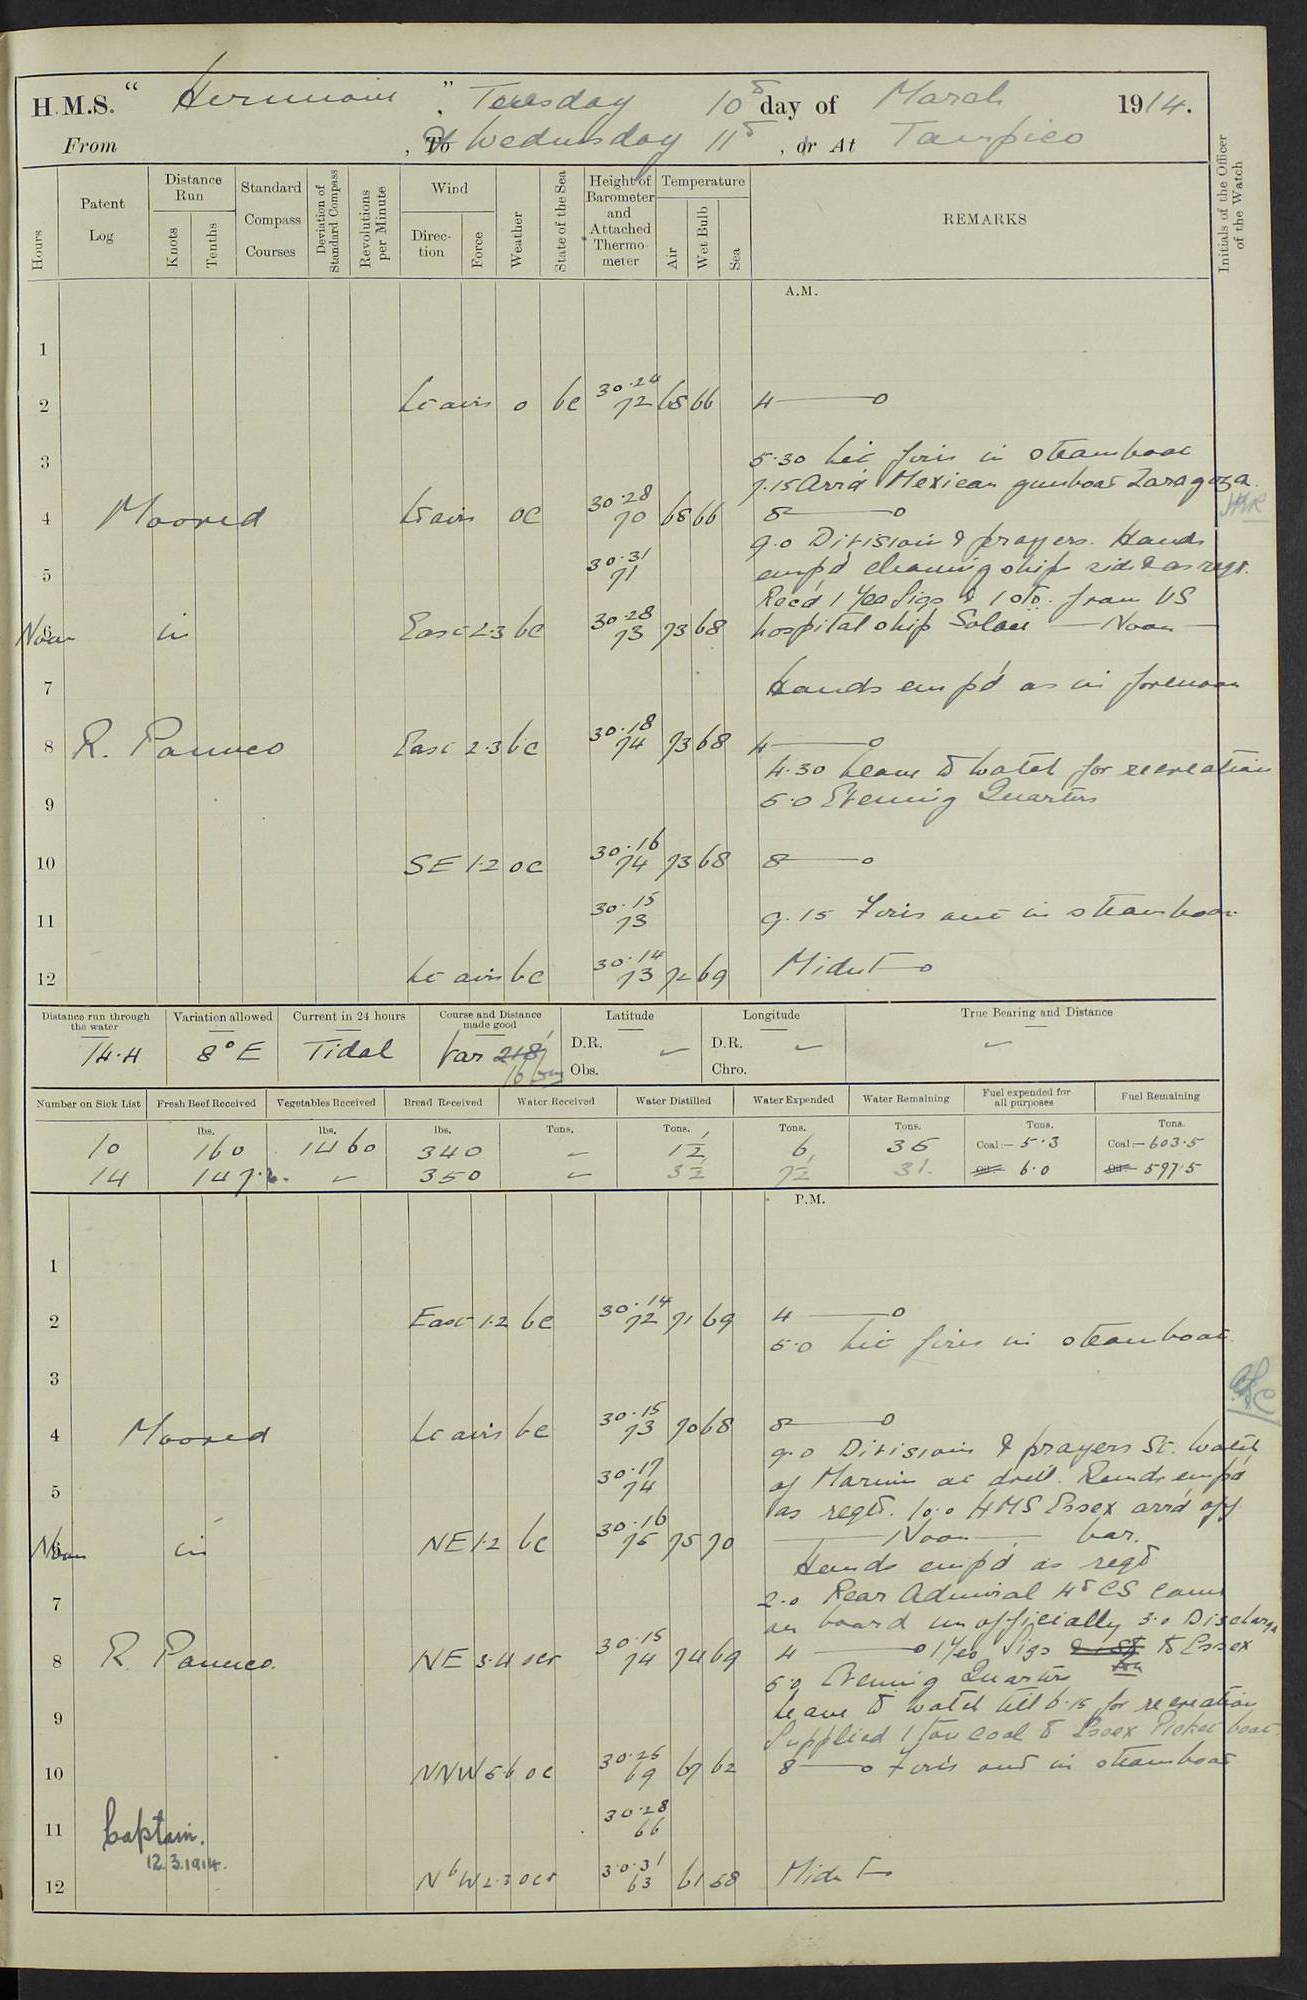 H.M.S. " Hermione ", Tuesday 10th day of March 1914.
From , & Wednesday 11th , or At Tampico
Hours
Patent Log
Distance Run
Knots
Tenths
Standard Compass Courses
Deviation of Standard Compass
Revolutions per Minute
Wind
Direction
Force
Weather
State of the Sea
Height of Barometer and Attached Thermometer
Temperature
Air
Wet Bulb
Sea
REMARKS
Initials of the Officer of the Watch
A.M.
1
2 Lt airs 0 bc 30.24 72 68 66 4 ——o
3 5.30 Lit fires in steamboat
7.15 Arrd Mexican gunboat Zaragoza.
4 Moored Lt airs oc 30.28 70 68 66 8 ——o
9.0 Divisions & prayers. Hands
5 30.31 71 empd cleaning ship side & as reqd.
Recd 1 Yeo Sigs & 1 from US
Noon in East 2.3 bc 30.28 73 73 68 hospital ship Solace — Noon —
7 Hands empd as in forenoon
8 R. Panuco East 2.3 bc 30.18 74 73 68 4 ——o
4.30 Leave to watch for recreation
9 5.0 Evening Quarters
10 SE 1.2 oc 30.16 74 73 68 8 ——o
11 30.15 73 9.15 Fires out in steamboat
12 Lt airs bc 30.14 73 72 69 Midnt —o
Distance run through the water
Variation allowed
Current in 24 hours
Course and Distance made good
Latitude
Longitude
True Bearing and Distance
14.4 8° E Tidal Var 218 D.R. — D.R. — —
Obs. Chro.
Number on Sick List
Fresh Beef Received
Vegetables Received
Bread Received
Water Received
Water Distilled
Water Expended
Water Remaining
Fuel expended for all purposes
Fuel Remaining
lbs. lbs. lbs. Tons. Tons. Tons. Tons. Tons. Tons.
10 160 1460 340 — 1½ 6 35 Coal:— 5.3 Coal:— 603.5
14 147. — 350 — 3½ 7½ 31. Oil:— 6.0 Oil:— 597.5
P.M.
1
2 East 1.2 bc 30.14 72 71 69 4 ——o
5.0 Lit fires in steamboat
3
4 Moored Lt airs bc 30.15 73 70 68 8 ——o
9.0 Divisions & prayers St. watch
5 30.17 74 of Marines at drill. Hands empd
as reqd. 10.0 HMS Essex arrd off
Noon in NE 1.2 bc 30.16 75 75 70 — Noon — bar.
Hands empd as reqd
7 2.0 Rear Admiral 4th CS came
on board unofficially 3.0 Discharged
8 R. Panuco. NE 3.4 ocr 30.15 74 74 69 4 ——o 1 Yeo Sigs to Essex
5.0 Evening Quarters
9 Leave to watch till 6.15 for recreation
Supplied 1 ton coal to Essex Picket boat
10 NNW 5.6 oc 30.25 69 67 62 8 ——o Fires out in steamboat
11 30.28 66
Captain.
12.3.1914.
12 NbW 2.3 ocr 30.31 63 61 58 Midnt —o